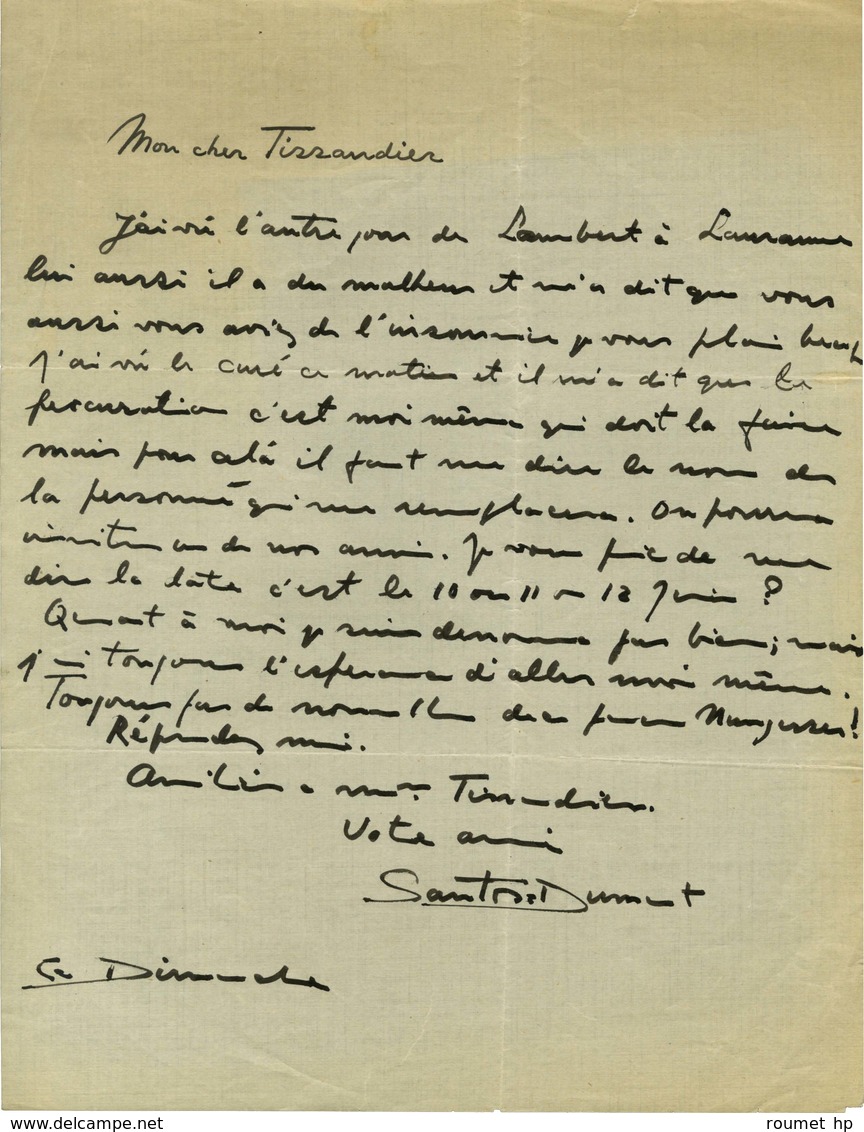 Mon cher Tissandier
J'ai vu l'autre jour de Lambert à Lausanne
lui aussi il a du malheur et m'a dit que vous
aussi vous aviez de l'insomnie je vous plain beaucp
J'ai vu le curé ce matin et il m'a dit que la
procuration c'est moi même qui doit la faire
mais pour celà il faut me dire le nom de
la personne qui me remplacera. On pourra
inviter un de nos amis. Je vous prie de me
dire la date c'est le 10 ou 11 ou 12 Juin ?
Quant à moi je suis pas bien; mais
j'ai toujours l'esperance d'aller moi même.
Toujours pas de nouvelles de ce pauvre Nungesser!
Répondez moi.
Amitiés a Mme Tissandier.
Vote ami
Santos=Dumont
Ce Dimanche
delcampe.net
roumet hp